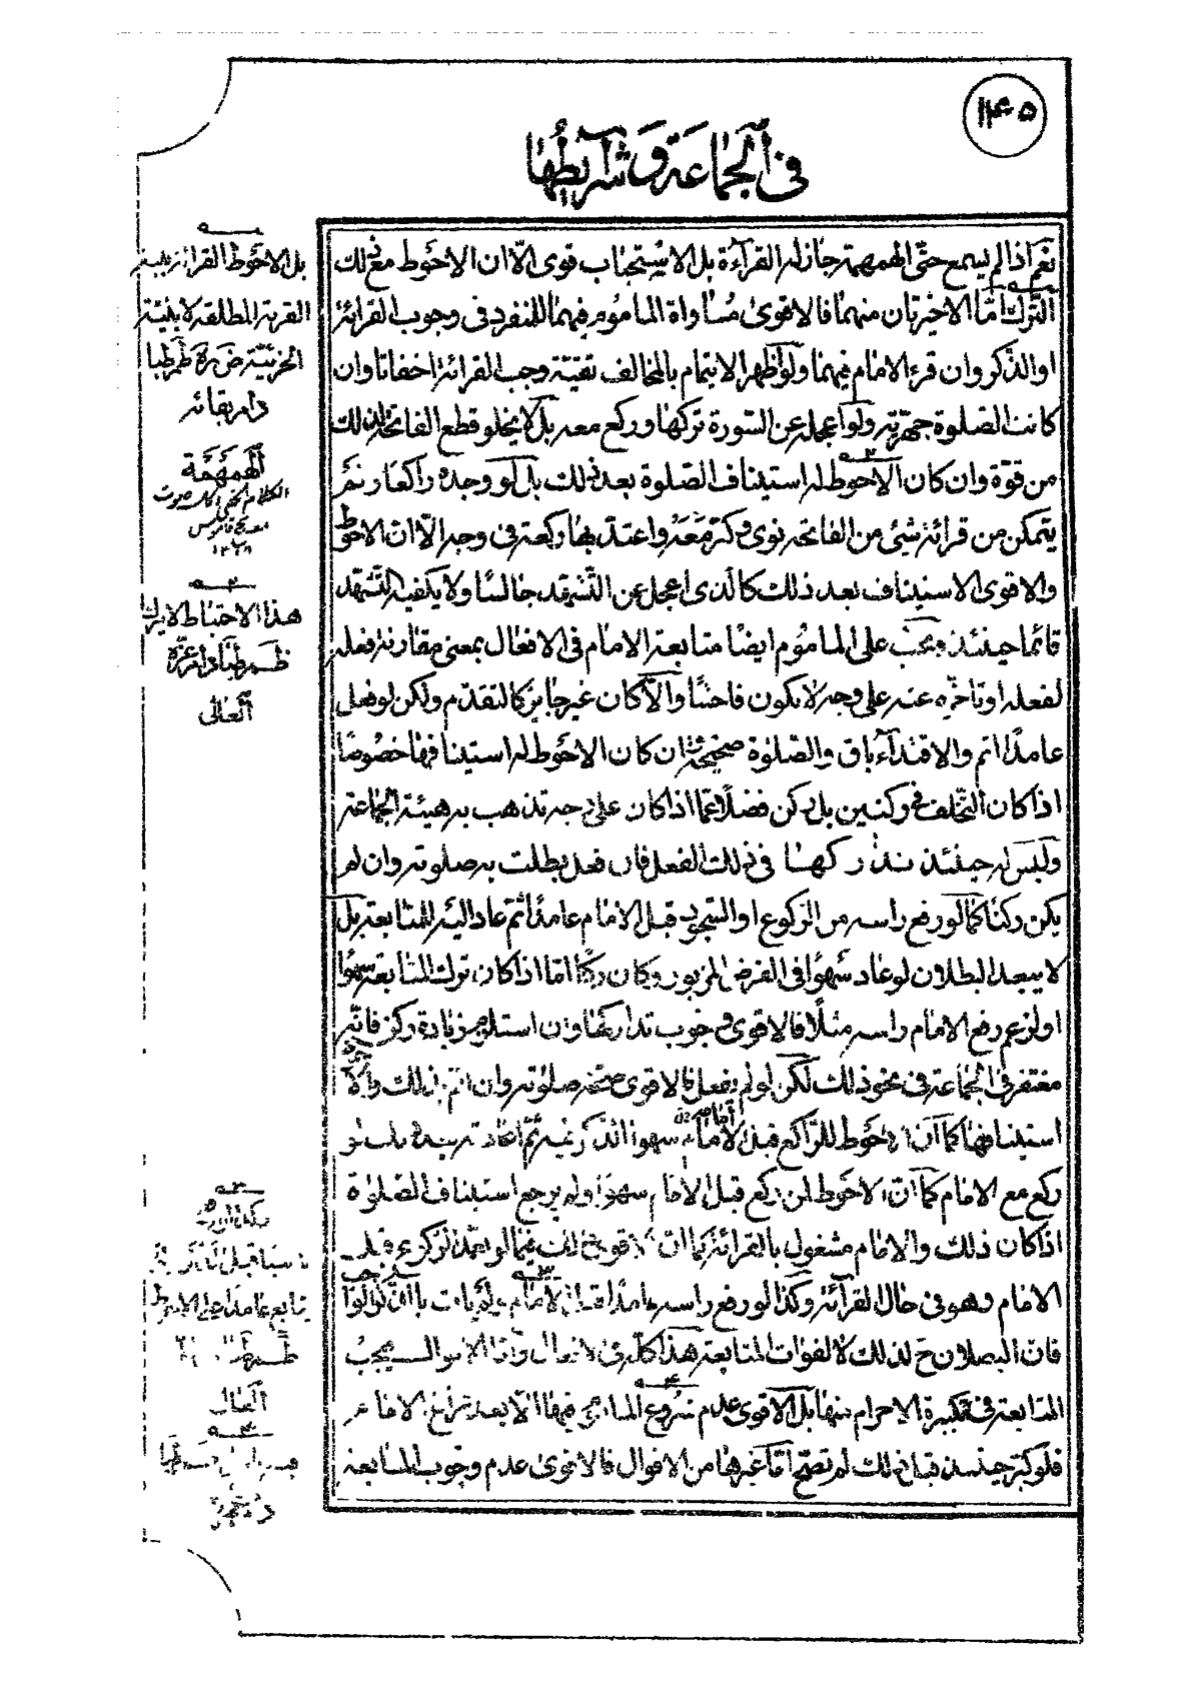 ١٤٥
في الجماعة وشرائطها
نعم اذا لم يسمع حتّى الهمهمة جاز له القرآءة بل الاستحباب قوى الّا ان الاحوط مع ذلك
الترك امّا الاخيرتان منهما فالاقوى مساواة الماموم فيهما للمنفرد فى وجوب القرائة
او الذّكر وان قرء الامام فيهما ولو اظهر الايتمام بالمخالف تقيّة وجب القرائة اخفاتا وان
كانت الصّلوة جهريّة ولو اعجله عن السّورة تركها وركع معه بل لا يخلو قطع الفاتحة لذلك
من قوّة وان كان الاحوط له استيناف الصّلوة بعد ذلك بل لو وجده راكعا ولم
يتمكن من قرائة شئ من الفاتحة نوى وكبّر معه واعتد بها ركعة فى وجه الّا ان الاحوط
والاقوى الاستيناف بعد ذلك كالّذى اعجل عن التّشهّد جالسًا ولا يكفيه التّشهّد
قائما حينئذ ويجب على الماموم ايضًا متابعة الامام فى الافعال بمعنى مقارنة فعله
لفعله او تاخّره عنه على وجه لا يكون فاحشًا والّا كان غير جايز كالتقدّم ولكن لو فعل
عامدًا اثم والاقتدآء باق والصّلوة صحيحة ان كان الاحوط له استينافها خصوصًا
اذا كان التّخلف فى ركنين بل ركن فضلًا عمّا اذا كان على وجه تذهب به هيئة الجماعة
وليس له حينئذ تداركها فى ذلك الفعل فان فعل بطلت به صلوته وان لم
يكن ركنا كما لو رفع راسه من الرّكوع او السّجود قبل الامام عامدًا ثم عاد اليه للمتابعة بل
لا يبعد البطلان لو عاد سهوًا فى الفرض المزبور وكان ركنًا امّا اذا كان ترك المتابعة سهوًا
او لزعم رفع الامام راسه مثلًا فالاقوى وجوب تداركها وان استلزم زيادة ركن فانّه
مغتفر فى الجماعة فى نحو ذلك لكن لو لم يفعل فالاقوى صحّة صلوته وان اثم بذلك والاحوط
استينافها كما ان الاحوط للرّاكع قبل الامام سهوا
ركع مع الامام كما انّ الاحوط لمن ركع قبل الامام سهوًا ولم يرجع استيناف الصّلوة
اذا كان ذلك والامام مشغول بالقرائة كما ان الاقوى ذلك فيما لو تعمّد الرّكوع قبل
الامام وهو فى حال القرآئة وكذا لو رفع راسه عامدًا قبل الامام ولم يات بالذّكر الواجب
فانّ البطلان ح لذلك لا لفوات المتابعة هذا كلّه فى الافعال وامّا الاقوال فيجب
المتابعة فى تكبيرة الاحرام منها بل الاقوى عدم شروع الماموم فيها الّا بعد فراغ الامام
فلو كبّر حينئذ قبل ذلك لم تصحّ امّا غيرها من الاقوال فالاقوى عدم وجوب المتابعة
بل الاحوط القرائة بنية
القربة المطلقة لا بنيّة
الجزئيّة ض ره ظم طبا
دام بقائه
الهمهمة
الكلام الخفى
قاموس
هذا الاحتياط لا يترك
ظم طبا دام عزّه
العالى
العالى